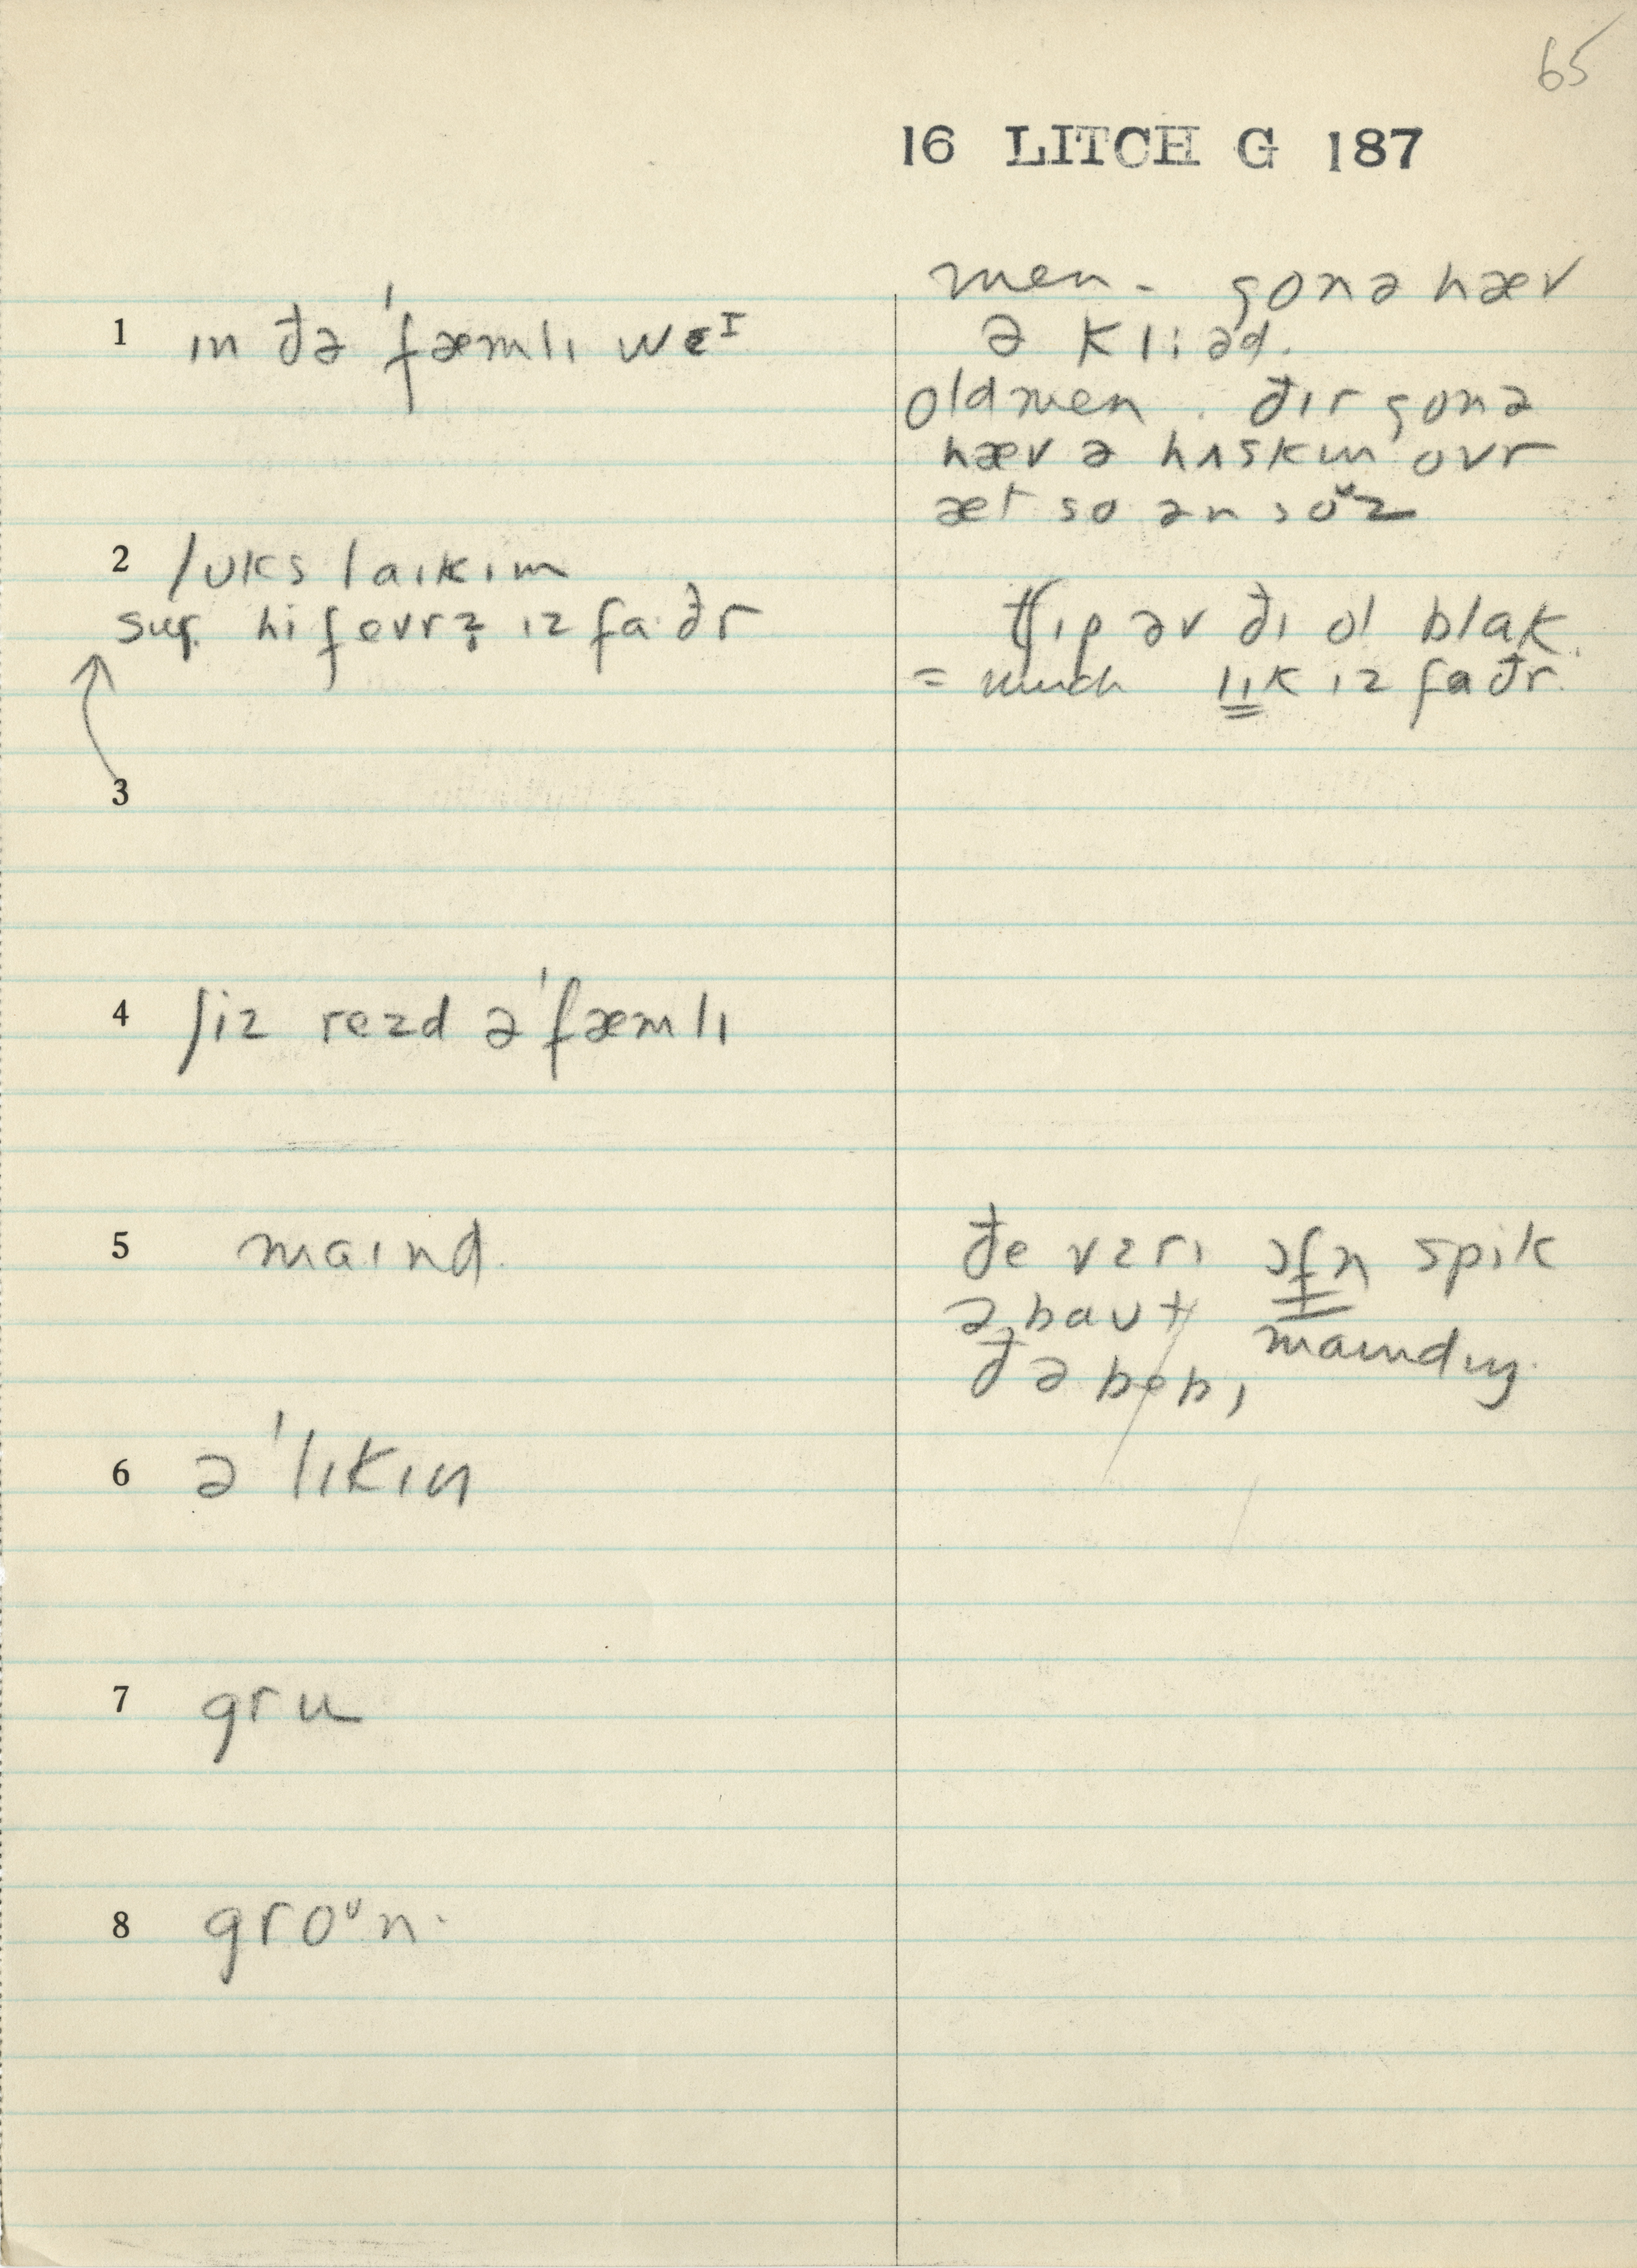 65
16 LITCH G 187
1 ɪn ðə ˈfæmlɪ weᴵ
2 lʊks laɪkɪm
sug. hi fevrz ɪz fa·ðr
3
4 ʃiz rezd ə ˈfæmlɪ
5 maɪnd.
6 ə ˈlɪkɪn
7 gru
8 groᶷn.
men - gonə hæv
ə kliəd.
old men. ðɪr gonə
hæv ə hʌskɪn ovr
æt so ən soᶷz
tʃɪp əv ðɪ ol blak.
= much lɪk ɪz faðr.
ðe vɛrɪ ɔfn spik
əbaut maɪndɪŋ.
ðə bebɪ